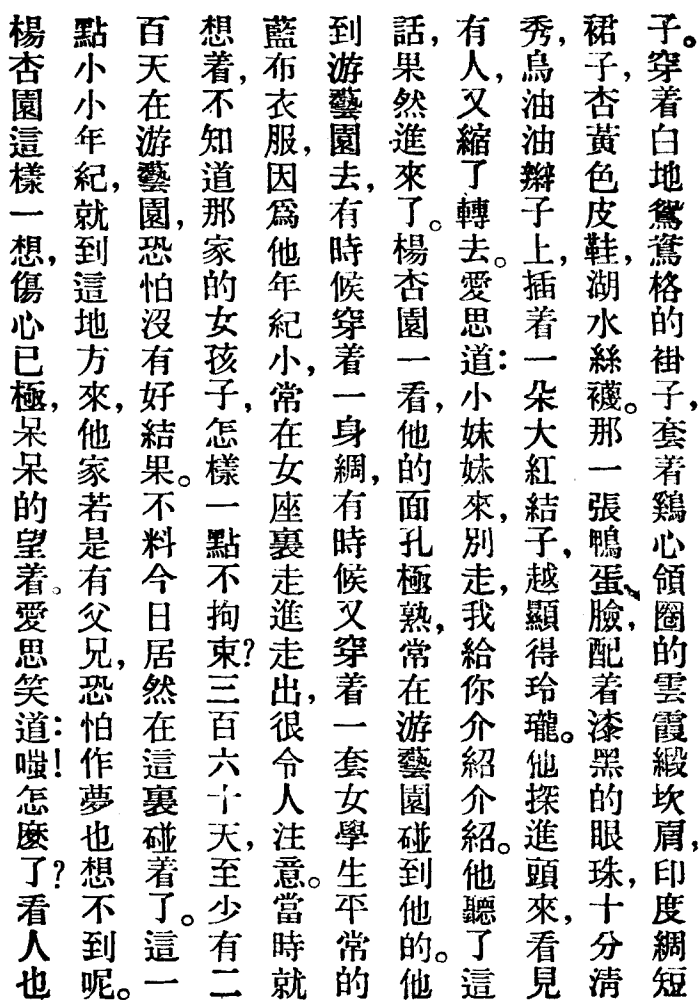 子。穿着白地鴛鴦格的褂子,套着鷄心領圈的雲霞緞坎肩,印度綢短
裙子,杏黃色皮鞋,湖水絲襪。那一張鴨蛋臉,配着漆黑的眼珠,十分清
秀,烏油油辮子上,插着一朵大紅結子,越顯得玲瓏。他探進頭來,看見
有人,又縮了轉去。愛思道:小妹妹來,別走,我給你介紹介紹。他聽了這
話,果然進來了。楊杏園一看,他的面孔極熟,常在游藝園碰到他的。他
到游藝園去,有時候穿着一身綢,有時候又穿着一套女學生平常的
藍布衣服,因爲他年紀小,常在女座裏走進走出,很令人注意。當時就
想着,不知道那家的女孩子,怎樣一點不拘束?三百六十天,至少有二
百天在游藝園,恐怕沒有好結果。不料今日居然在這裏碰着了。這一
點小小年紀,就到這地方來,他家若是有父兄,恐怕作夢也想不到呢。
楊杏園這樣一想,傷心已極,呆呆的望着。愛思笑道:嗤!怎麽了?看人也